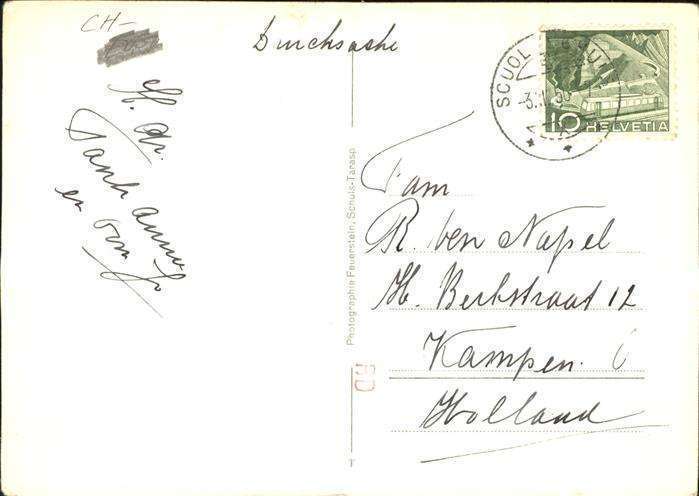 CH-
Drucksache
SCUOL
-3.
10 HELVETIA
H. Gr.
Tante Annie
en Oom J
Photographie Feuerstein, Schuls-Tarasp
Fam
R. ven Napel
H. Berkstraat 12
Kampen.
Holland
T